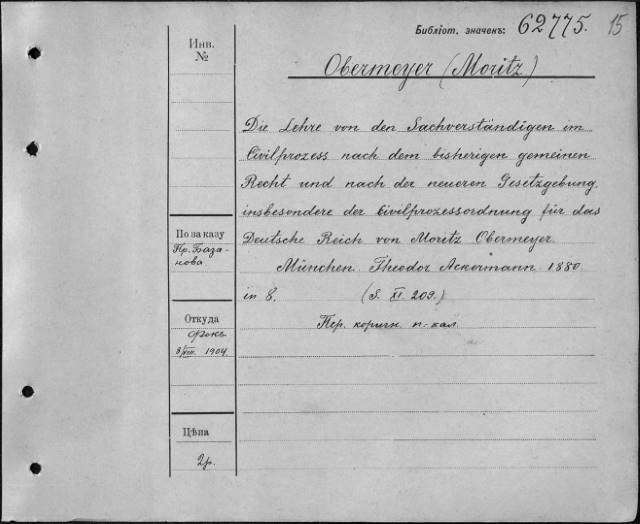 Библіот. значекъ: 62775. 15
Инв.
№
Obermeyer (Moritz)
Die Lehre von den Sachverständigen im
Civilprozess nach dem bisherigen gemeinen
Recht und nach der neueren Gesetzgebung,
insbesondere der Civilprozessordnung für das
Deutsche Reich von Moritz Obermeyer.
München. Theodor Ackermann 1880
in 8. (S. XI. 209.)
Пер. коричн. п-кал.
По заказу
Пр. База-
нова
Откуда
Фокъ
1904
Цѣна
2р.